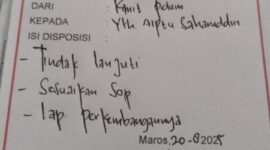 DARI : Kanit Pidum
KEPADA : Yth. Aiptu Saharuddin
ISI DISPOSISI :
- Tindak lanjuti
- Sesuaikan Sop
- Lap. perkembangannya
Maros, 20-8-2025